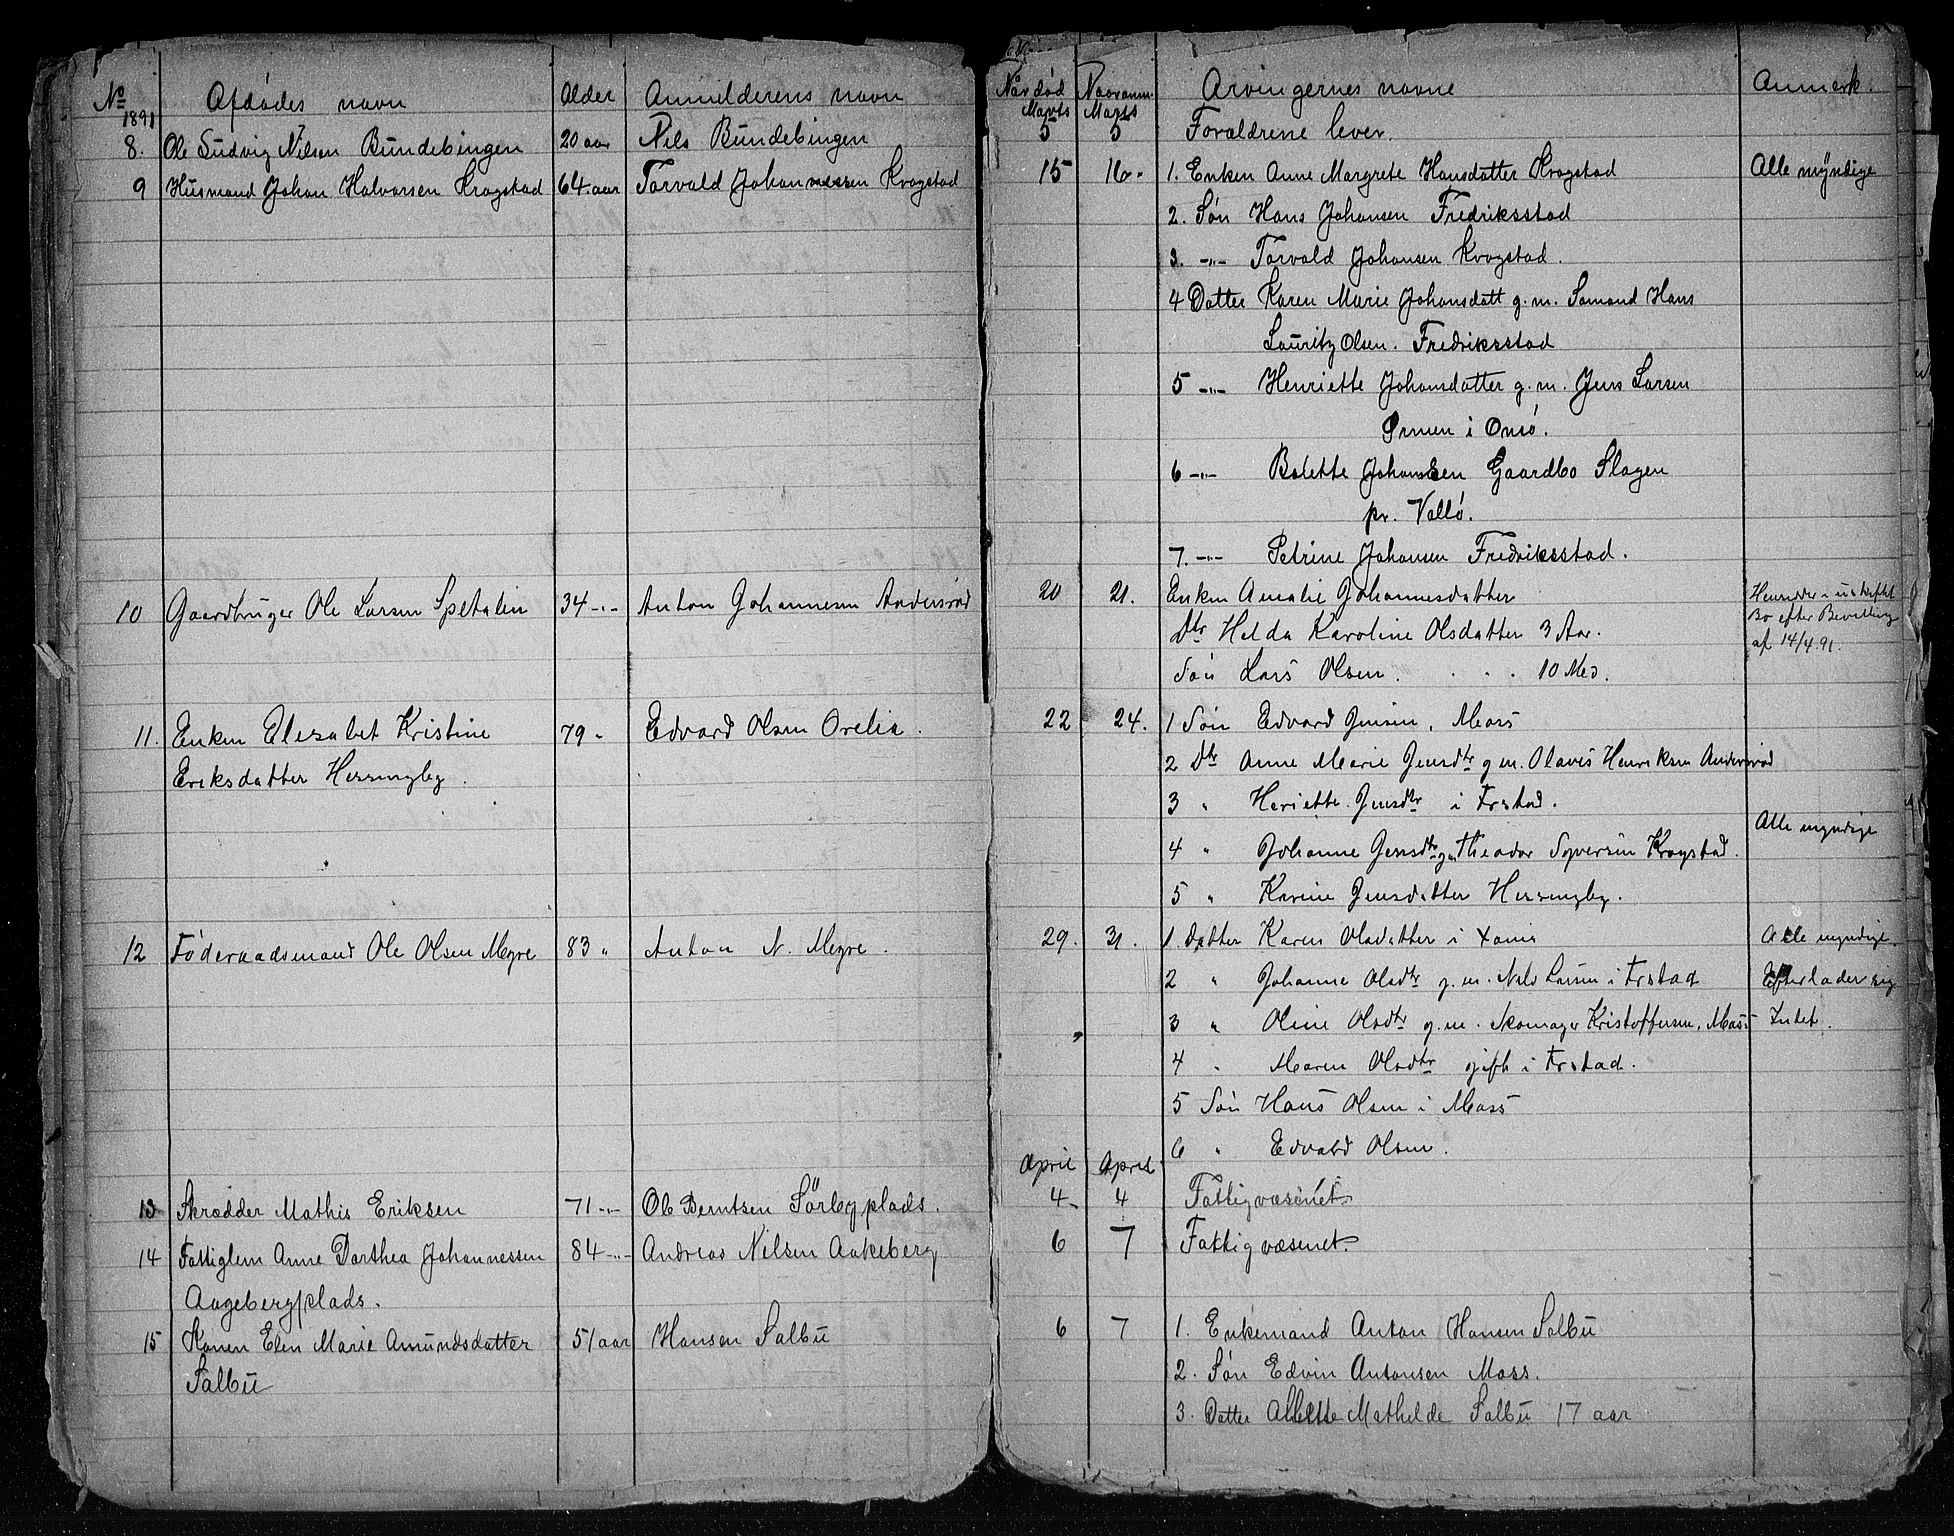 No Afdødes navn Alder Anmelderens navn Når død Naar anm. Arvingernes navne Anmerk.
1891 Marts Marts
8. Ole Ludvig Nilsen Bundebingen 20 aar Nils Bundebingen 5 5 Forældrene lever.
9 Husmand Johan Halvorsen Krogstad 64 aar Torvald Johannessen Krogstad 15 16. 1. Enken Anne Margrete Hansdatter Krogstad Alle myndige
2. Søn Hans Johansen Fredriksstad
3. -"- Torvald Johansen Krogstad.
4 Datter Karen Marie Johansdatt g. m. Sømand Hans
Lauritz Olsen. Fredriksstad
5 -"- Henriette Johansdatter g. m. Jens Larsen
i Onsø.
6 -"- Bolette Johansen Gaardbo Slagen
pr. Vallø.
7. -"- Petrine Johansen Fredriksstad.
10 Gaardbruger Ole Larsen Spetalen 34 -"- Anton Johannesen Andersrød 20 21. Enken Amalie Johannesdatter Hensidder i uskiftet
Dtr Helda Karoline Olsdatter 3 Aar. Bo efter Bevilling
af 14/4.91.
Søn Lars Olsen. . . . 10 Md.
11. Enken Elesabet Kristine 79 " Edvard Olsen Orelia. 22 24. 1 Søn Edvard Jensen, Moss
2 Dtr Anne Marie Jensdtr g m. Olavis Henriksen Andersrød
Eriksdatter Herringby.
3 " Heriette Jensdtr i Frstad.
Alle myndige
4 " Johanne Jensdtr gm Theodor Syversen Krogstad.
5 " Karine Jensdatter Herringby.
12 Føderaadsmand Ole Olsen Mygre 83 " Anton N. Mygre. 29. 31. 1. Datter Karen Olsdatter i Xania Alle myndige.
2 " Johanne Olsdtr g. m. Nils Larsen i Frstad Efterlader sig
3 " Oline Olsdtr g. m. Skomager Kristoffersen, Moss Intet.
4 " Maren Olsdtr gift i Frstad.
5 Søn Hans Olsen i Moss
6 " Edvard Olsen.
April April
13 Skrædder Mathis Eriksen 71 -"- Ole Berntsen Sørby plads. 4 4 Fattigvæsenet
14 Fattiglem Anne Dorthea Johannessen 84 -"- Andreas Nilsen Aakeberg 6 7 Fattigvæsenet.
Aageberg plads.
15 Konen Elen Marie Amundsdatter 51 aar Hansen Salbu 6 7 1. Enkemand Anton Hansen Salbu
Salbu
2. Søn Edvin Antonsen Moss.
3. Datter Albette Mathilde Salbu 17 aar